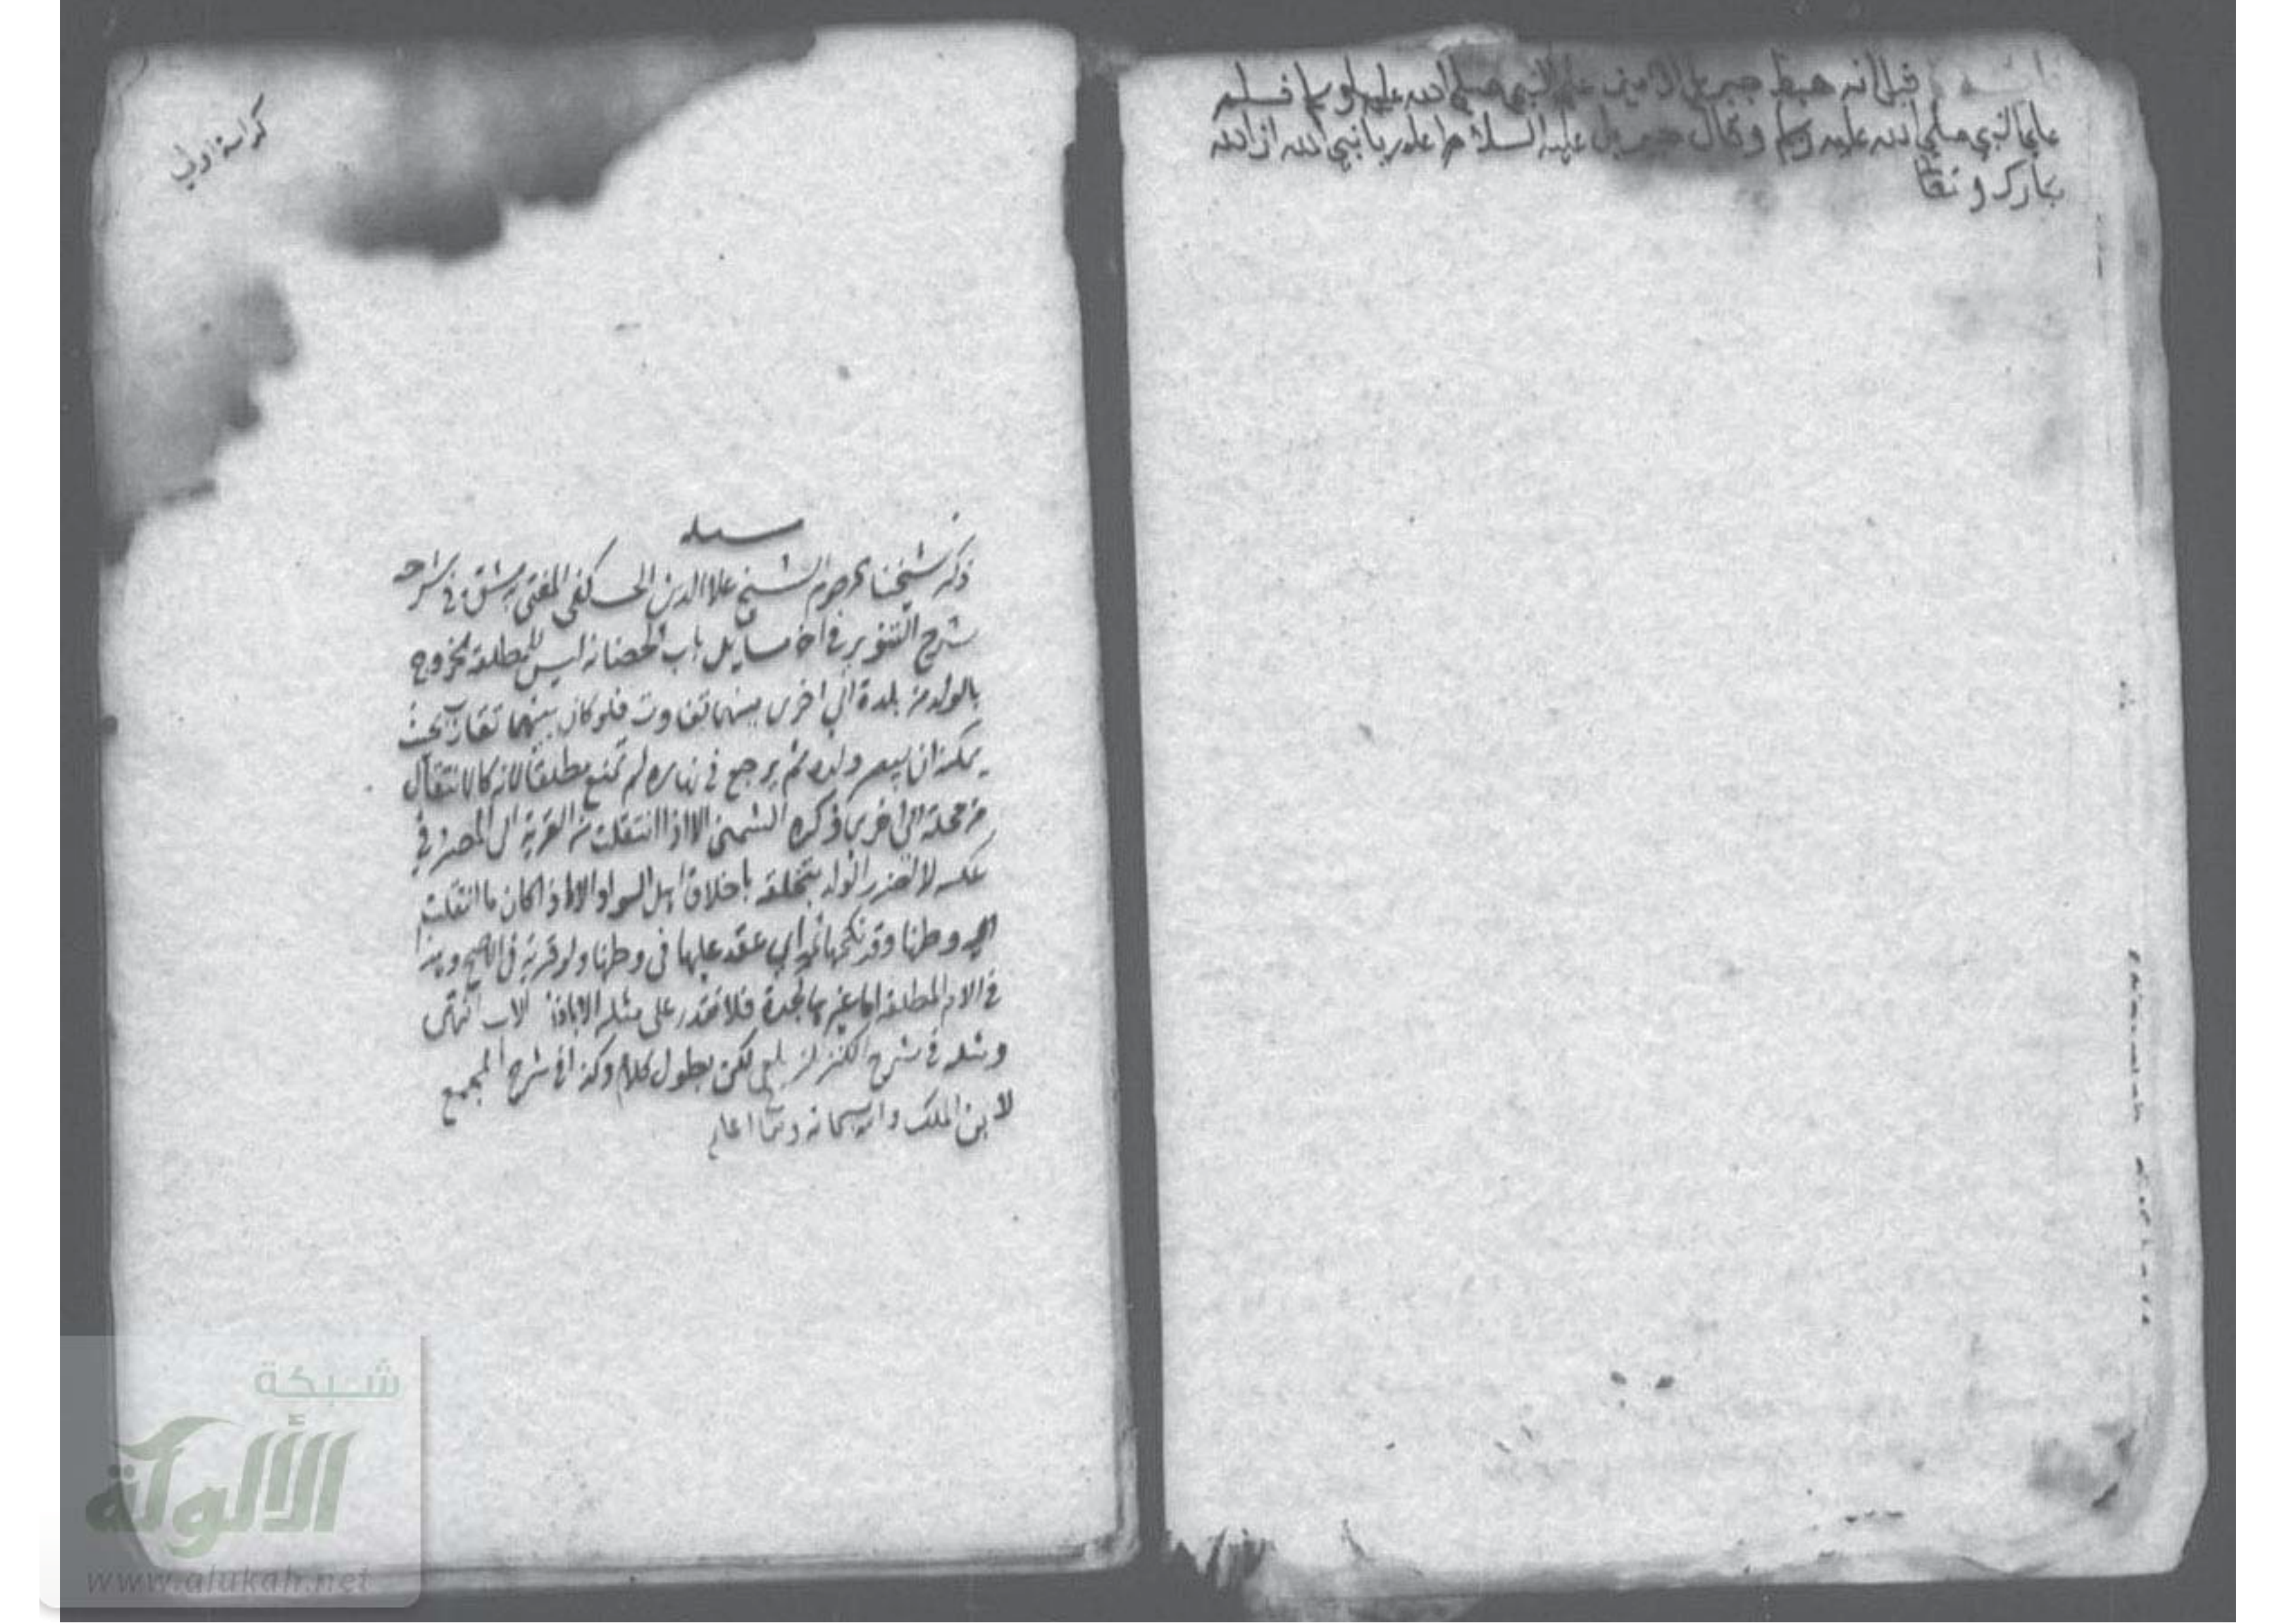 قيل انه هبط جبريل الامين علي النبي صلي الله عليه وسلم فسلم
علي النبي صلي الله عليه وسلم وقال جبريل عليه السلام يا نبي الله ان الله
تبارك وتعا
كراسة اولي
مسئله
ذكر شيخنا المرحوم الشيخ علا الدين الحصكفي المفتي بدمشق في شرحه
شرح التنوير في اخر مسايل باب الحضانة ليس للمطلقة الخروج
بالولد من بلدة الي اخرى بينهما تفاوت فلو كان بينهما تقارب بحيث
يمكنه ان يبصر ولده ثم يرجع في نهاره لم تمنع مطلقا لانه كالانتقال
من محلة الى اخرى ذكره الشمني الا اذا انتقلت من القرية الى المصر وفي
عكسه لا لضرر الولد بتخلقه باخلاق اهل السواد الا اذا كان ما انتقلت
اليه وطنها وقد نكحها ثمه اي عقد عليها في وطنها ولو قرية في الاصح وهذا
في الام المطلقة اما غيرها كجدة فلا تقدر على نقله الا باذن الاب انتهى
ومثله في شرح الكنز للزيلعي لكن بطول كلام وكذا في شرح المجمع
لابن الملك والله سبحانه وتعا اعلم
شبكة
الألوكة
www.alukah.net